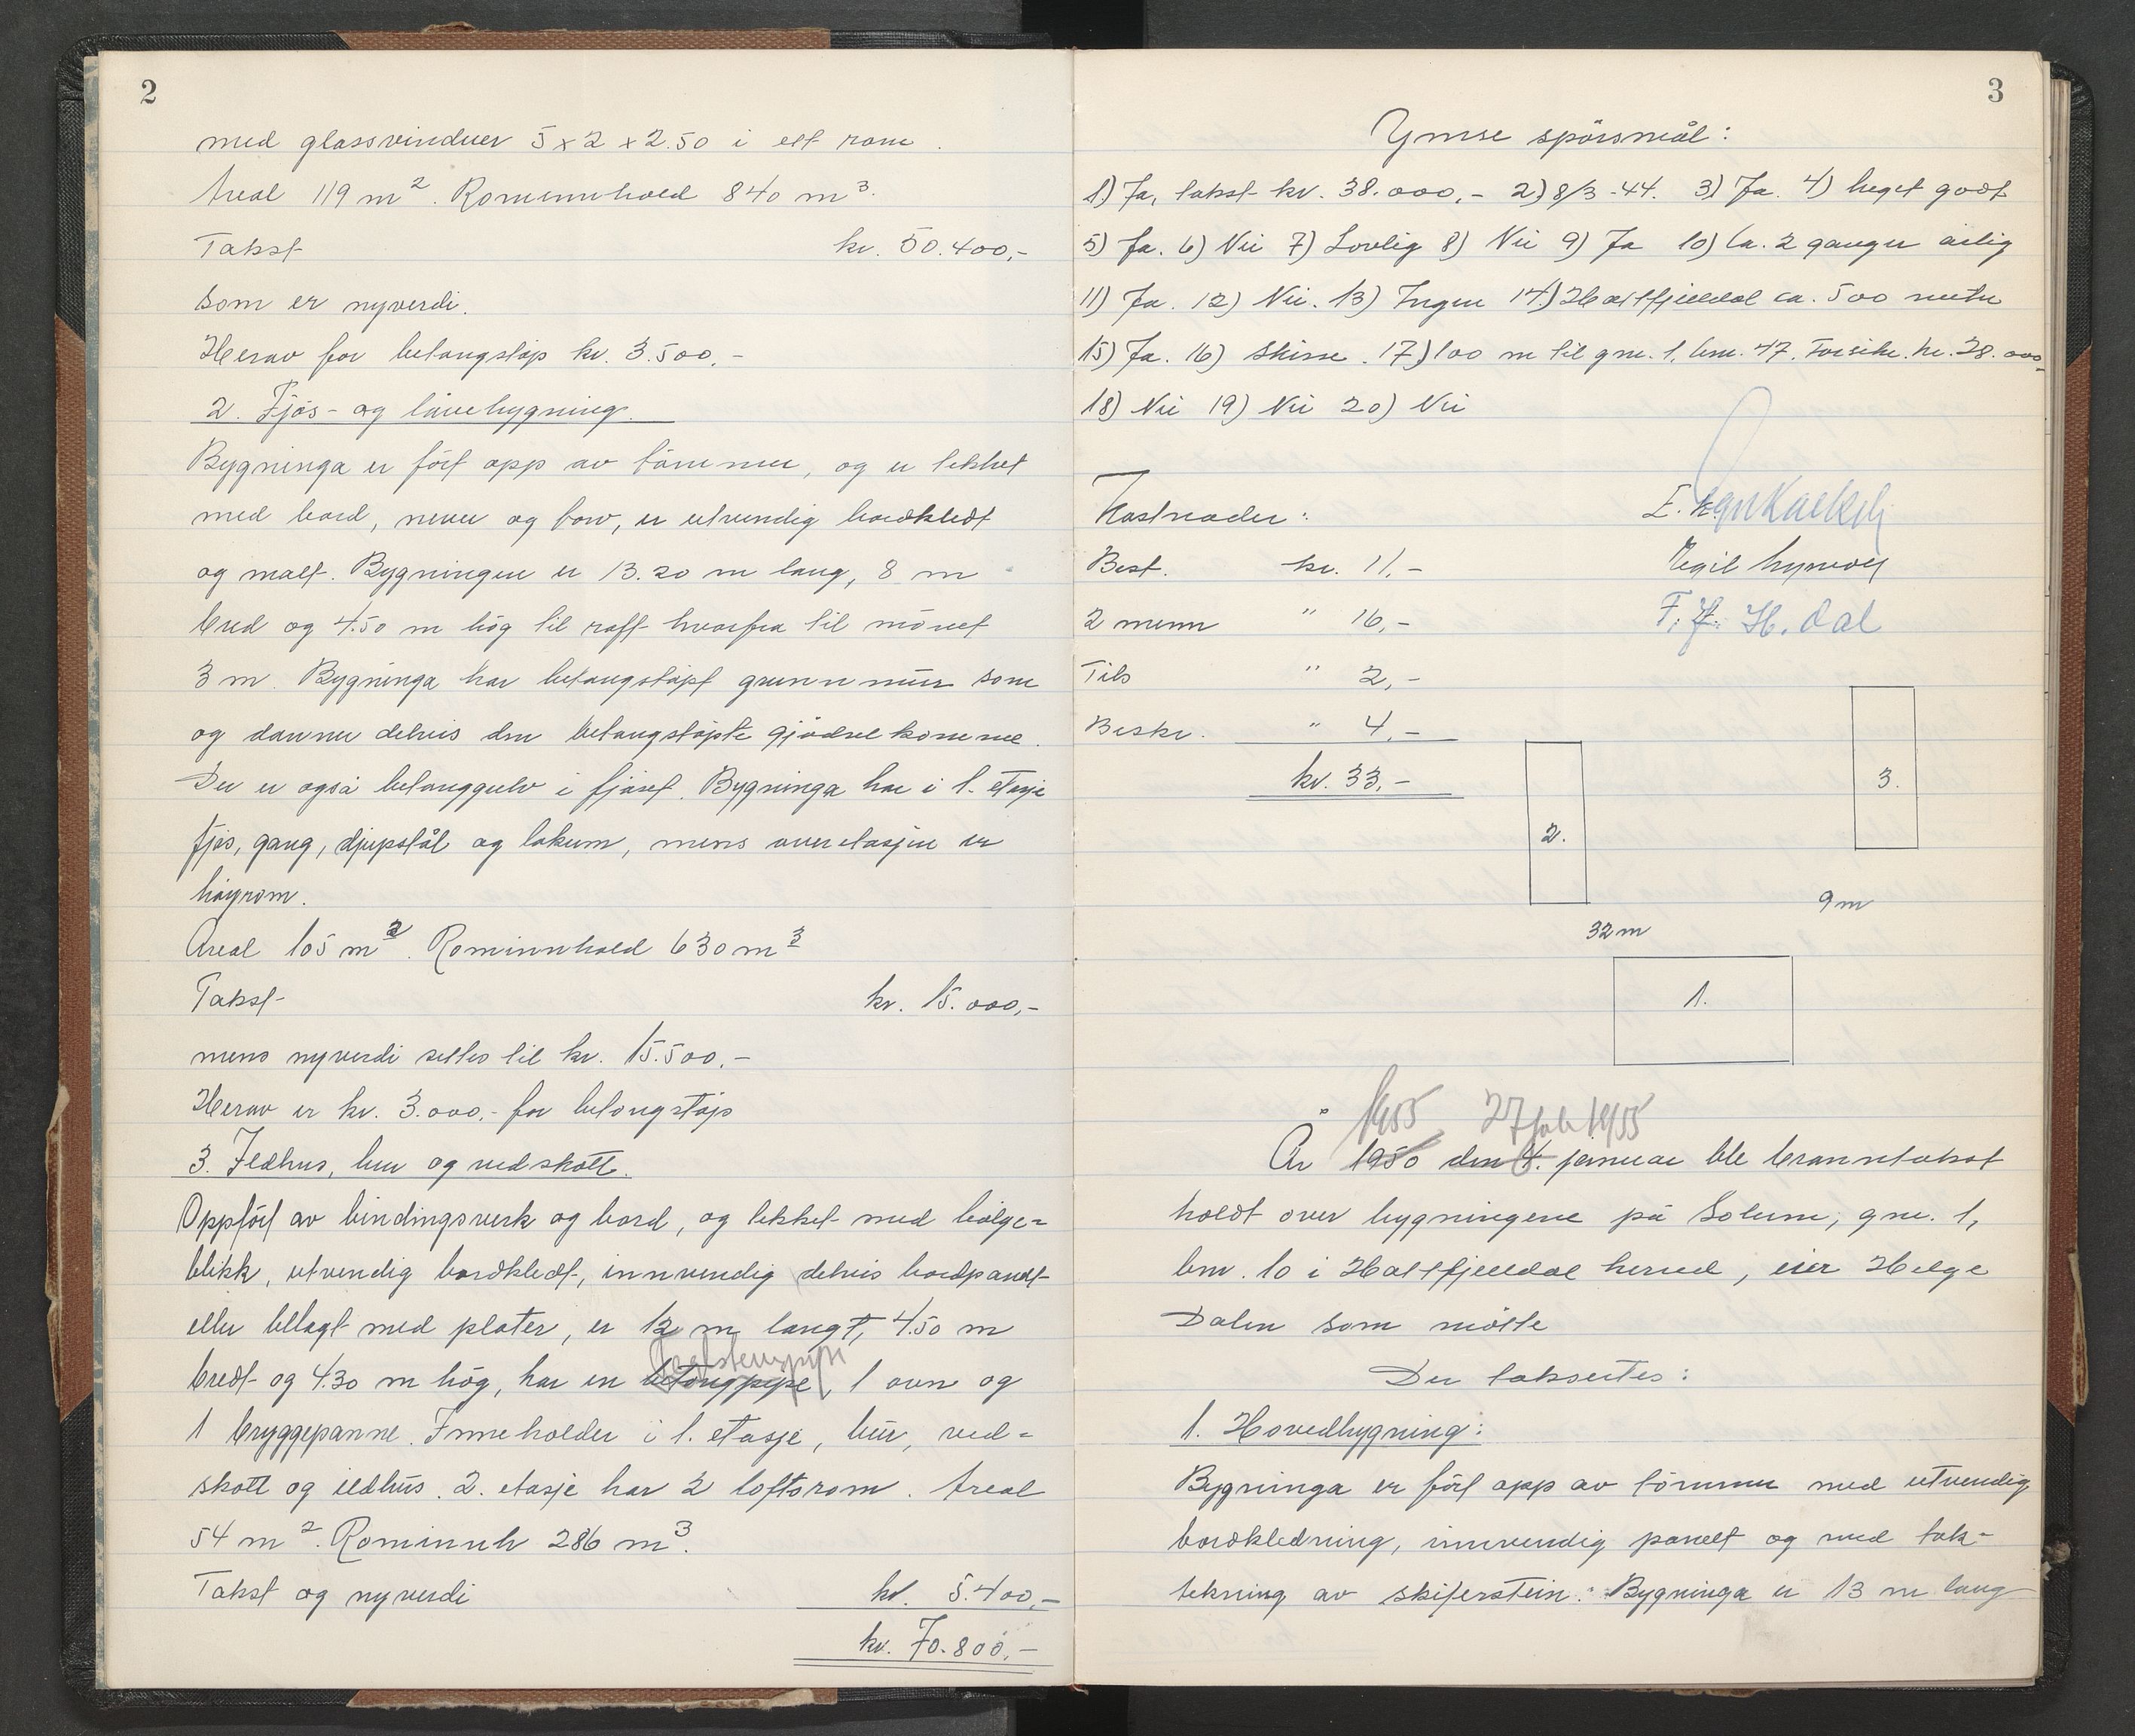 2
med glassvinduer 5 x 2 x 2.50 i ett rom.
Areal 119 m². Rominnhold 840 m³.
Takst kr. 50.400,-
som er nyverdi.
Herav for betongstöp kr. 3.500,-
2. Fjös- og låvebygning.
Bygninga er fört opp av tömmer, og er tekket
med bord, never og torv, er utvendig bordkledt
og malt. Bygningen er 13.20 m lang, 8 m
bred og 4.50 m hög til raft hvorfra til mönet
3 m. Bygninga har betongstöpt grunnmur som
og danner delvis den betongstöpte gjödselkomme.
Der er også betonggulv i fjöset. Bygninga har i 1. etasje
fjös, gang, djupstål og lokum, mens overetasjen er
höyrom.
Areal 105 m². Rominnhold 630 m³
Takst kr. 15.000,-
mens nyverdi settes til kr. 15.500,-
Herav er kr. 3.000,- for betongstöp
3. Ildhus, bur og vedskott.
Oppfört av bindingsverk og bord, og tekket med bölge=
blikk, utvendig bordkledt, innvendig delvis bordpanelt
eller belagt med plater, er 12 m langt, 4.50 m
teglstenspipe
bredt og 4.30 m hög, har en betongpipe, 1 ovn og
1 bryggepanne. Inneholder i 1. etasje, bur, ved=
skott og ildhus. 2. etasje har 2 loftsrom. Areal
54 m². Rominnh 286 m³.
Takst og nyverdi kr. 5.400,-
kr. 70.800,-
3
Ymse spörsmål:
1) Ja, takst kr. 38.000,- 2) 8/3-44. 3) Ja. 4) Meget godt
5) Ja. 6) Nei 7) Lovlig 8) Nei 9) Ja 10) Ca. 2 ganger årlig
11) Ja. 12) Nei. 13) Ingen 14) Hattfjelldal ca. 500 meter
15) Ja. 16) Skisse. 17) 100 m til gnr. 1, bnr. 47. Forsikr. kr. 28.000,-
18) Nei 19) Nei 20) Nei
Kostnader:
Best. kr. 11,-
2 menn " 16,-
Egil
Tils " 2,-
F. H. Dal
Beskr. " 4,-
kr. 33,-
3.
2.
9 m
32 m
1.
1955 27 feb 1955
År 1950 den 4. januar ble branntakst
holdt over bygningene på Solum, gnr. 1,
bnr. 10 i Hattfjelldal herred, eier Helge
Dalen som mötte
Der takseres:
1. Hovedbygning:
Bygninga er fört opp av tömmer med utvendig
bordkledning, innvendig panelt og med tak-
tekning av skiferstein. Bygninga er 13 m lang